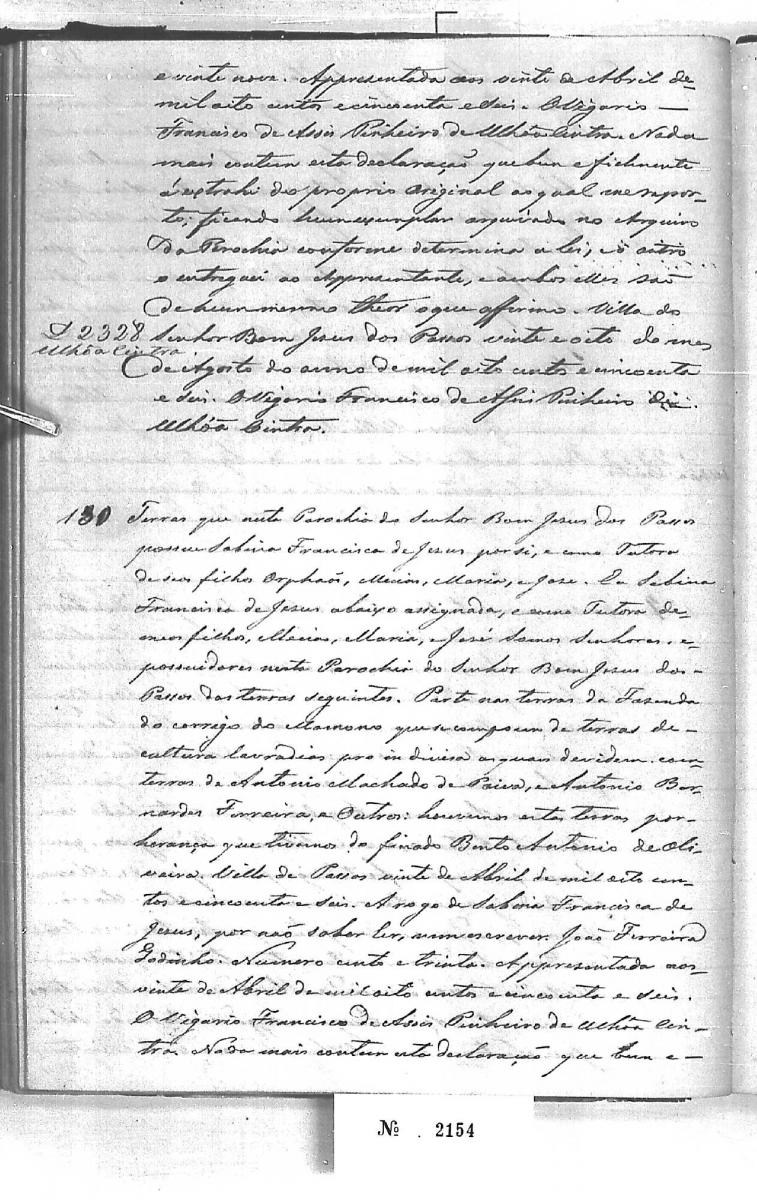 e vinte nove. Appresentada aos vinte de Abril de-
mil oito centos e cincoenta e seis. O Vigario —
Francisco de Assis Pinheiro de Ulhôa Cintra. Nada
mais contem esta declaração que bem e fielmente
á extrahi do proprio Original ao qual me repor-
to; ficando hum exemplar arquivado no Arquivo
da Parochia conforme determina a lei, e o outro
o entreguei ao Appresentante, e ambos elles são
de hum mesmo theor o que affirmo. Villa do
$ 2328 Senhor Bom Jesus dos Passos vinte e oito do mes
Ulhôa Cintra.
de Agosto do anno de mil oito centos e cincoenta
e seis. O Vigario Francisco de Assis Pinheiro de
Ulhôa Cintra.
130 Terras que nesta Parochia do Senhor Bom Jesus dos Passos
possue Sabina Francisca de Jesus por si, e como Tutora
de seos filhos Orphaõs, Mecias, Maria, e Jose. Eu Sabina
Francisca de Jesus abaixo assignada, e como Tutora de-
meos filhos, Mecias, Maria, e José Somos Senhores. e-
possuidores nesta Parochia do Senhor Bom Jesus dos-
Passos das terras seguintes. Parte nas terras da Fazenda
do corrego do Mamono que se compoem de terras de-
cultura lavradias pro in diviso as quais devidem com
terras de Antonio Machado de Paiva, e Antonio Ber-
nardes Ferreira, e Outros: houvemos estas terras por-
herança que tivemos do finado Bento Antonio de Oli-
veira. Villa de Passos vinte de Abril de mil oito cen-
tos e cincoenta e seis. A rogo de Sabina Francisca de
Jesus, por não saber ler, nem escrever. João Ferreira
Godinho. Numero cento e trinta. Appresentada aos-
vinte de Abril de mil oito centos e cincoenta e seis.
O Vigario Francisco de Assis Pinheiro de Ulhôa Cin-
tra. Nada mais contem esta declaração que bem e —
№ . 2154